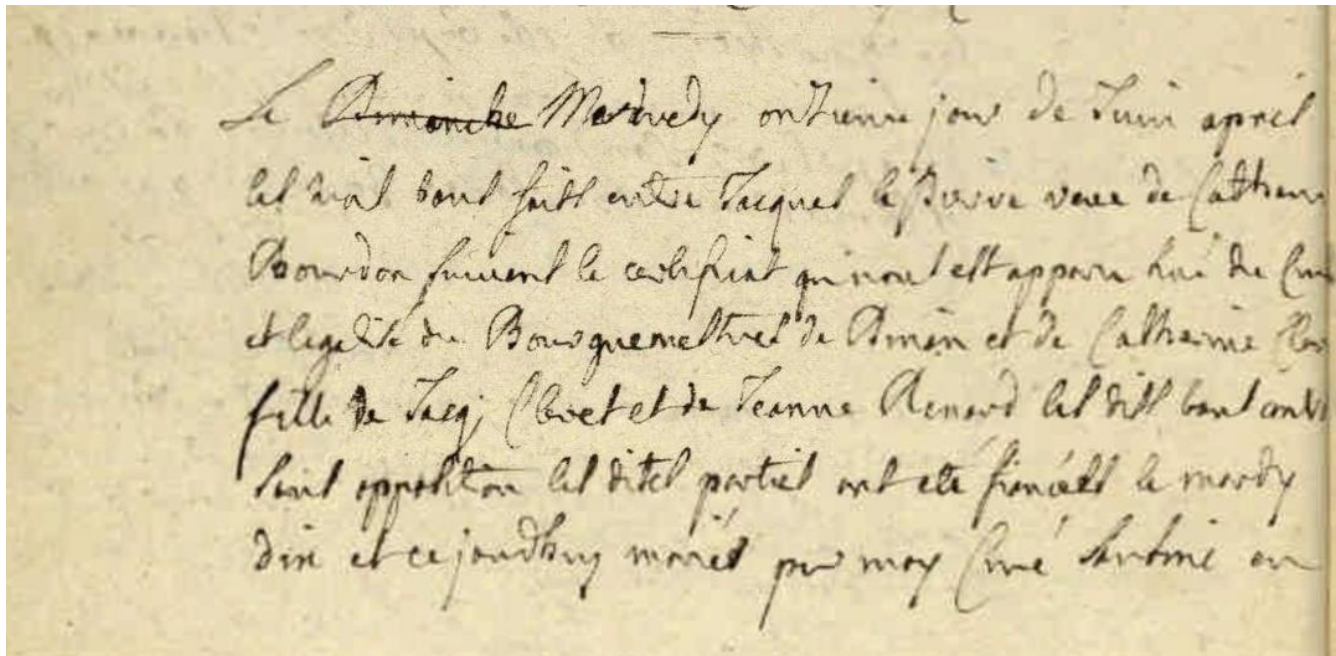 Le Dimanche Merdredy onzieme jour de Juin apres
les trois bans faits entre Jacques le veuve de Catherin
Bourdon suivent le certificat qui nous est apparu du Cur
et legalisé du Bourguemestres de Dinan et de Catherine Clor
fille de Jacq; Cloret et de Jeanne Renard les dits bans
sans opposition les dites parties ont eté fiancées le mardy
dix et ce jourdhuy mariés par moy Curé en